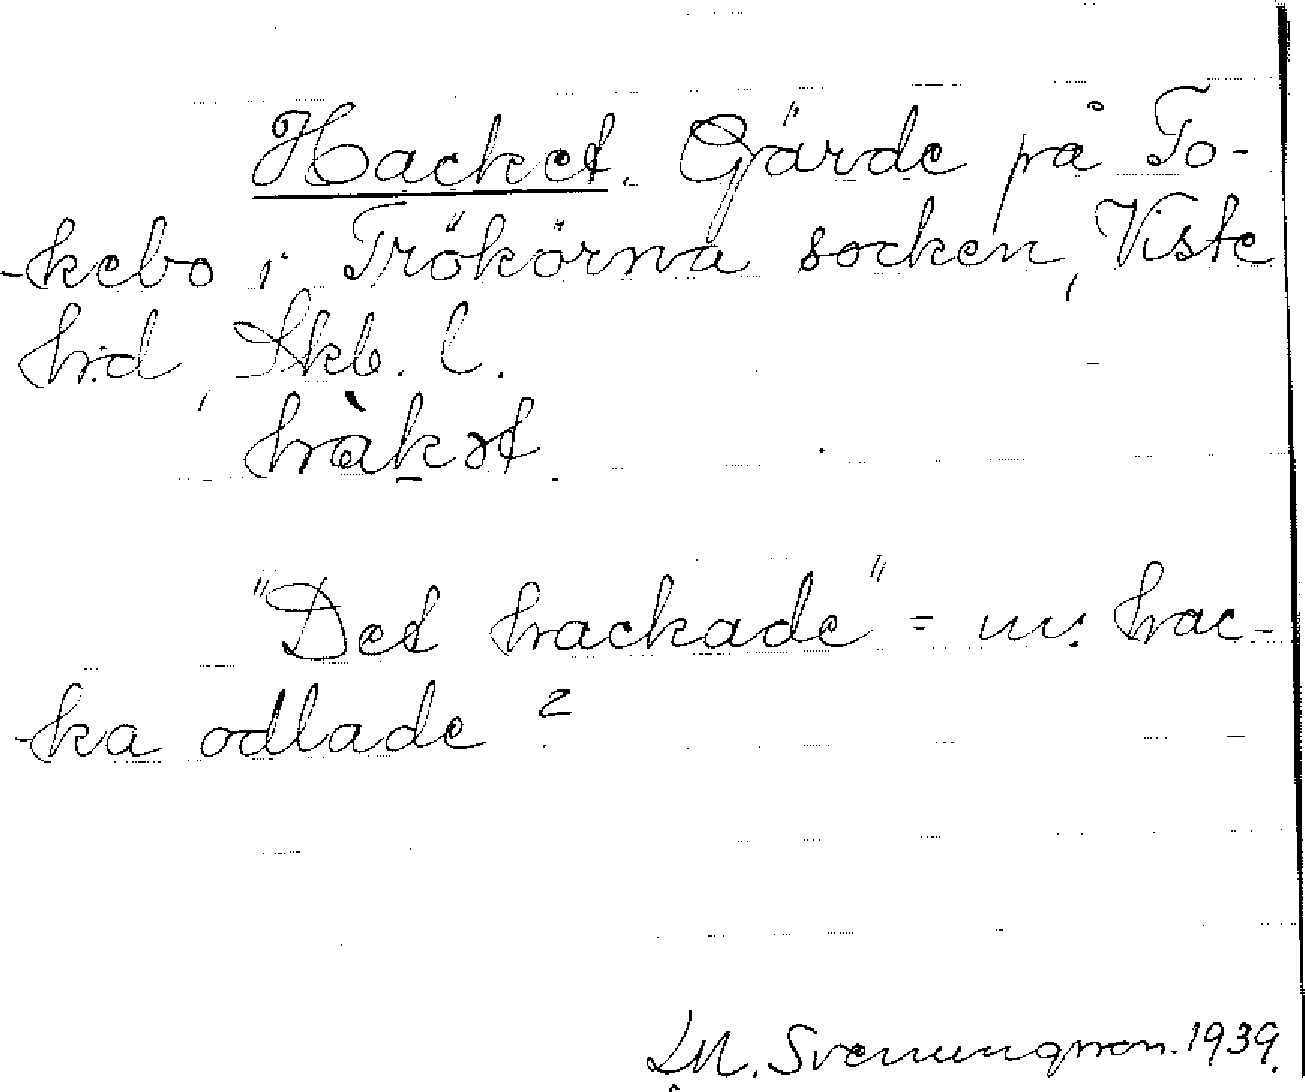 Hacket. Gärde på To-
kebo i Trökörna socken, Viste
hd, Skb. l.
hàkət
"Det hackade" = m. hac-
ka odlade?
Svenungsson. 1939.